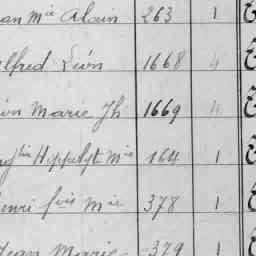 Jean Mie Alain 263 1
Alfred Léon 1668 4
Léon Marie Jh 1669 4
Hippolyte Mie 164 1
Henri fois Mie 378 1
Jean Marie 379 1